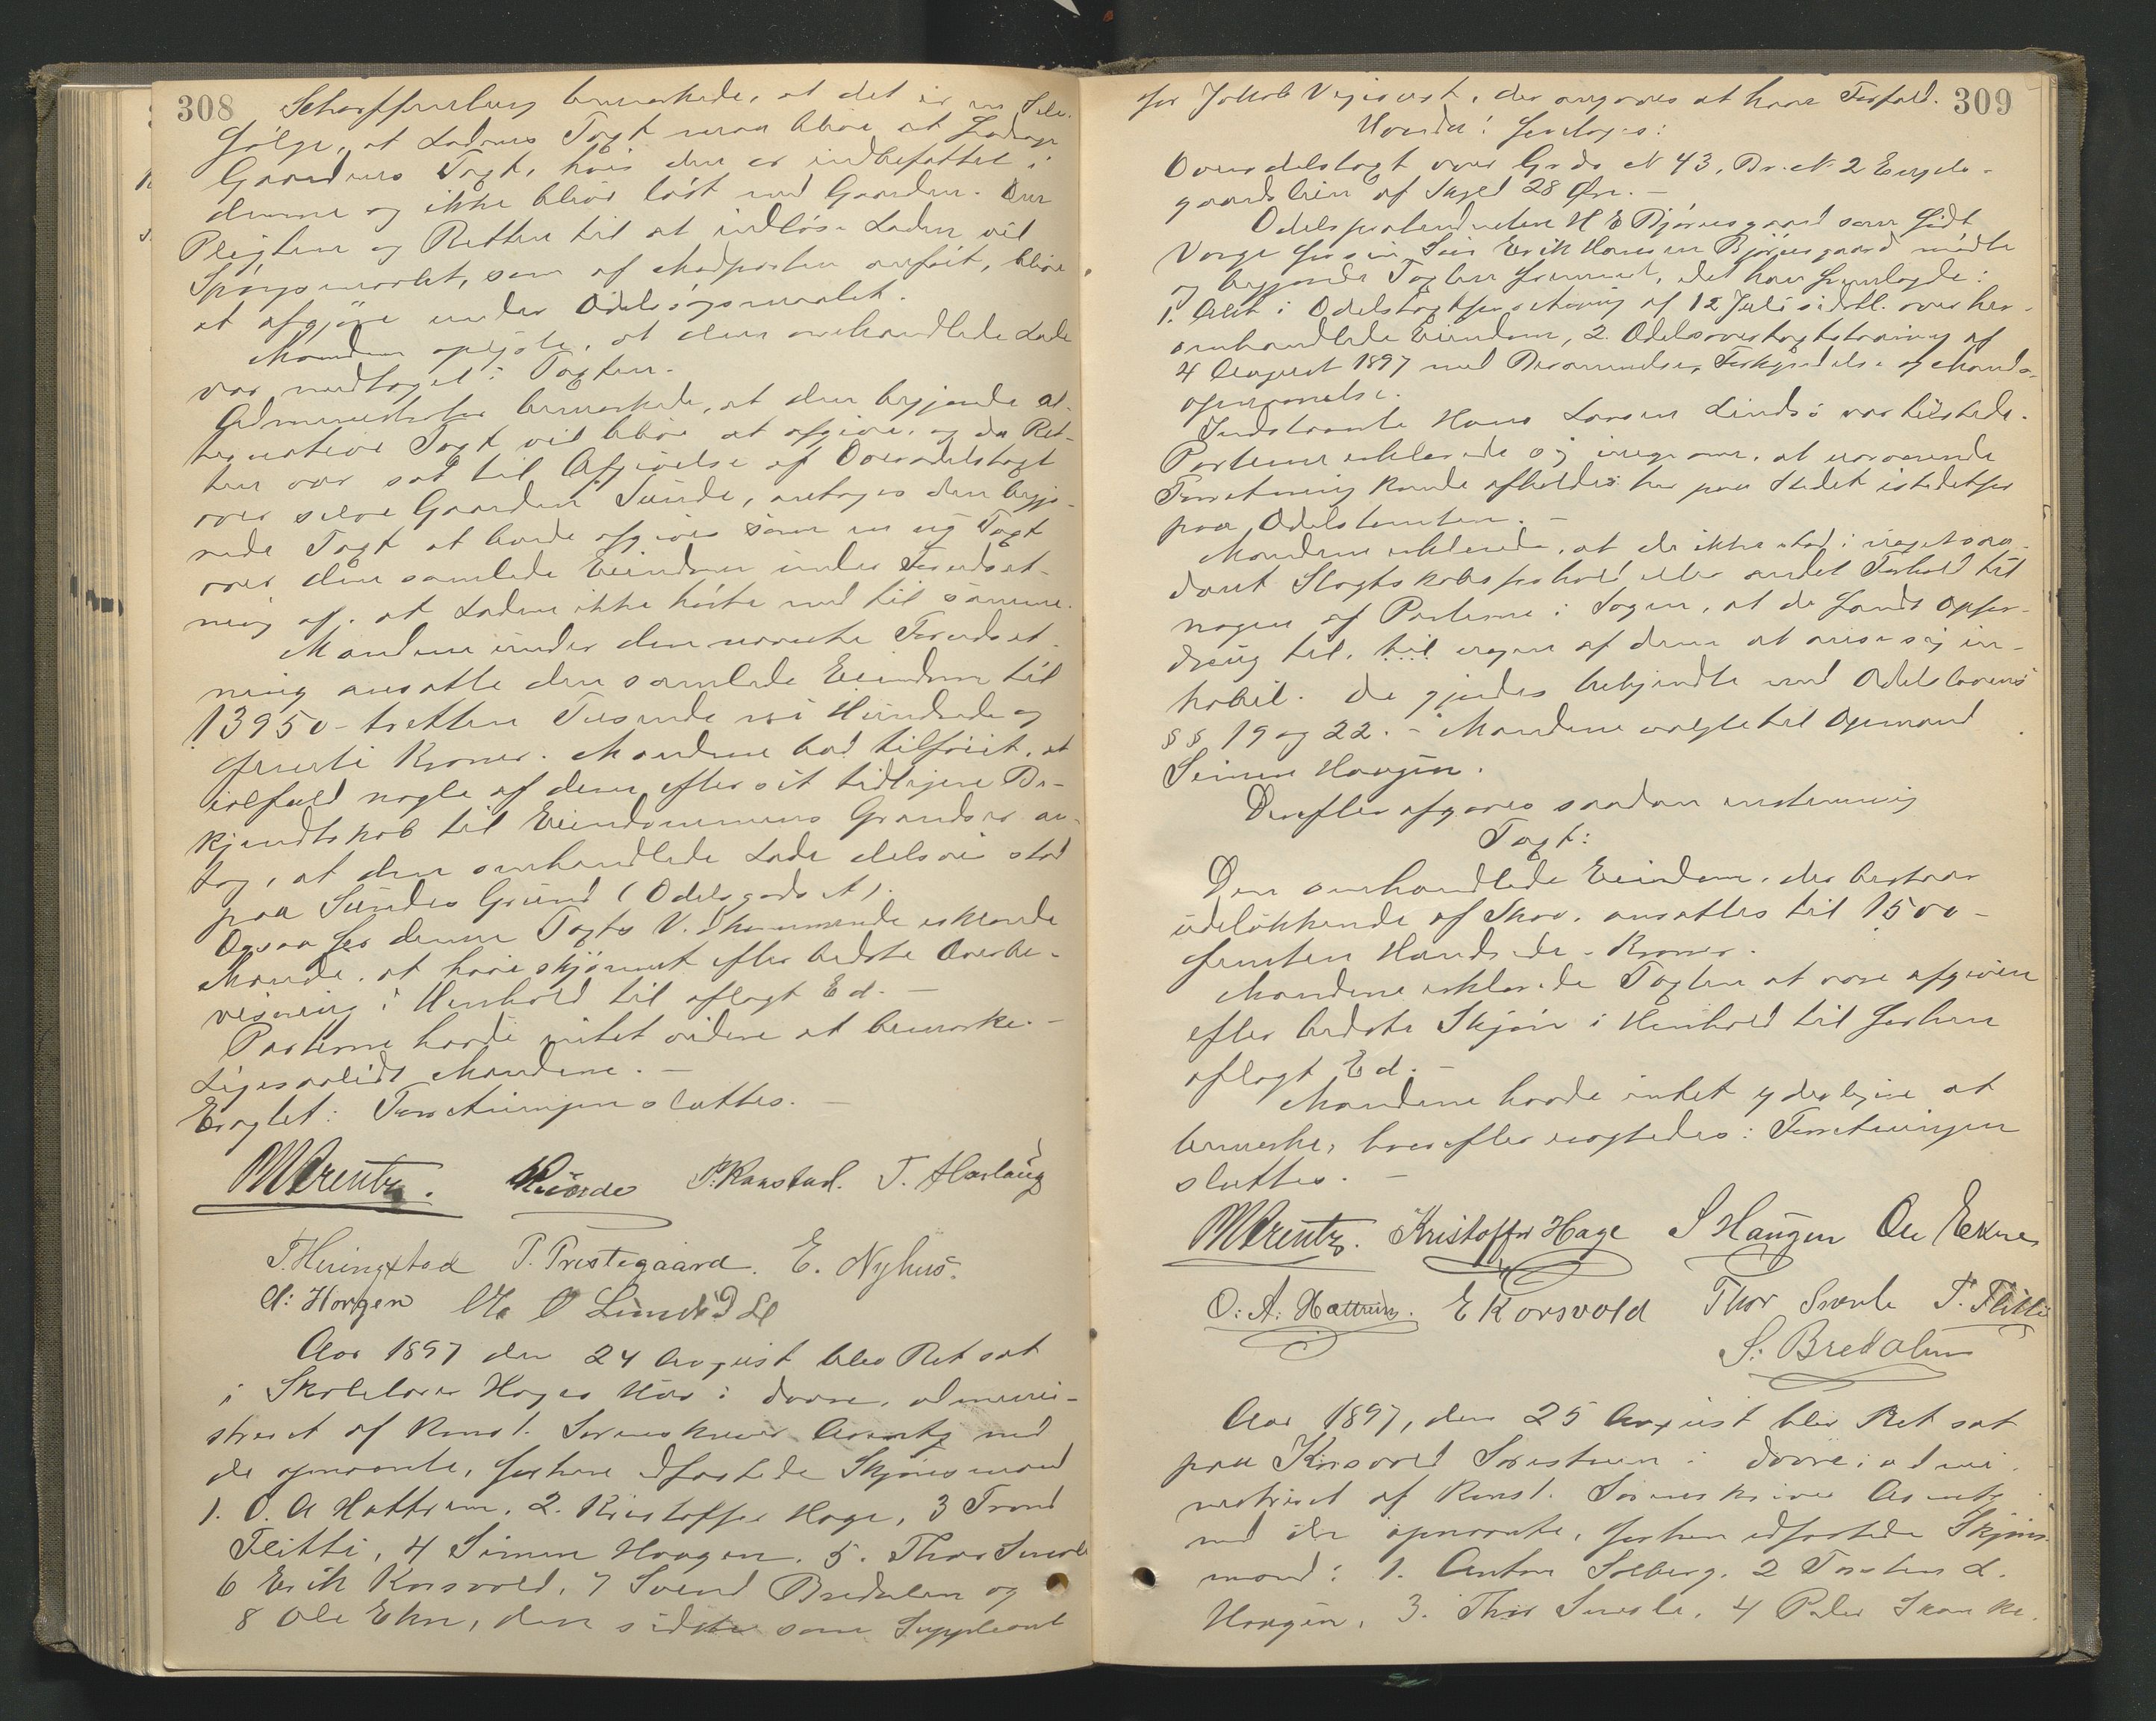 308
Scharffenberg bemærkede, at det er en Selv-
følge, at Ladens Taxt maa blive at fradrage
Gaardens Taxt, hvis den er indbefattet i
denne og ikke bliver løst med Gaarden. Om
Pligten og Retten til at indløse Laden vil
Spørgsmaalet, som af Modparten anført, blive
at afgjøre under Odelssøgsmaalet.
Mændene oplyste, at den omhandlede Lade
var medtaget i Taxten.
Administrator bemærkede, at den begjærede al-
ternative Taxt vil blive at afgive, og da Ret-
ten var sat til Afgivelse af Overodelstaxt
over selve Gaarden Sunde, antoges den begjæ-
rede Taxt at burde afgives som en ny Taxt
over den samlede Eiendom under Forudsæt-
ning af, at Laden ikke hørte med til samme.
Mændene under den nævnte Forudsæt-
ning ansatte den samlede Eiendom til
13950 - tretten Tusende ni Hundrede og
femti Kroner. Mændene bad tilføiet, at
ialfald nogle af dem efter sit tidligere Be-
kjendtskab til Eiendommens Grændser an-
tog, at den omhandlede Lade delsvis stod
paa Sundes Grund (Odelsgodset).
Ogsaa for denne Taxts Vedkommende erklærede
Mændene, at have skjønnet efter bedste Overbe-
visning i Henhold til aflagt Ed. -
Parterne havde intet videre at bemærke. -
Ligesaalidt Mændene. -
Eragtet: Forretningen sluttes. -
MArentz. P. Ranstad. T. Harlaug
T. Heringstad P. Prestegaard. E. Nyhus.
A: Horgen
Aar 1897 den 24 August blev Ret sat
i Skolelærer Hages Hus i Dovre, admini-
streret af Konst. Sorenskriver Arentz med
de opnævnte, forhen edfæstede Skjønsmænd
1. O. A Hattrem, 2. Kristoffer Hage, 3 Trond
Flitti, 4 Simen Haugen, 5. Thor Snerle
6 Erik Korsvold, 7 Svend Bredalen og
8 Ole Ekre, den sidste som Suppleant
309
for Jakob Vigerust, der angaves at have Forfald.
Hvorda! foretoges:
Overodelstaxt over Grds N 43, Br. N 2 Engels-
gaardslien af Skyld 28 Øre. -
Odelsprætendenten H E Bjørnsgaard som født
Værge for sin Søn Erik Hansen Bjørnsgaard mødte
og begjærede Taxten fremmet, idet han fremlagde:
1. Akt i Odelstaxtforretning af 12 Juli sidstl. over her-
omhandlede Eiendom, 2. Odelsovertaxtstævning af
4 August 1897 med Berammelse, Forkyndelse og Mænds
opnævnelse.
Indstævnte Hans Larsen Lindsø var tilstede.
Parterne erklærede sig enige om, at nærværende
Forretning kunde afholdes her paa Stedet istedetfor
paa Odelstomten. -
Mændene erklærede, at de ikke stod i noget saa-
dant Slægtskabsforhold eller andet Forhold til
nogen af Parterne i Sagen, at de fandt Opfor-
dring til, til nogen af dem at anse sig in-
habil. De gjordes bekjendte med Odelslovens
§§ 19 og 22. - Mændene valgte til Opmand
Simen Haugen.
Derefter afgaves saadan enstemmig
Taxt:
Den omhandlede Eiendom, der bestaar
udelukkende af Skov, ansattes til 1500 -
femten Hundrede - Kroner.
Mændene erklærede Taxten at være afgiven
efter bedste Skjøn i Henhold til forhen
aflagt Ed. -
Mændene havde intet yderligere at
bemærke, hvorefter eragtedes: Forretningen
sluttes. -
MArentz. Kristoffer Hage S Haugen Ole Ekre
O: A: Hattrem. E Korsvold Thor Snerle T. Flitti
S: Bredalen
Aar 1897, den 25 August blev Ret sat
paa Korsvold Søistuen i Dovre, admi-
nistreret af Konst. Sorenskriver Arentz
med de opnævnte, forhen edfæstede Skjøns-
mænd: 1. Anton Solberg. 2 Torsten L.
Haugen, 3. Thor Snerle, 4 Peder Skanke.